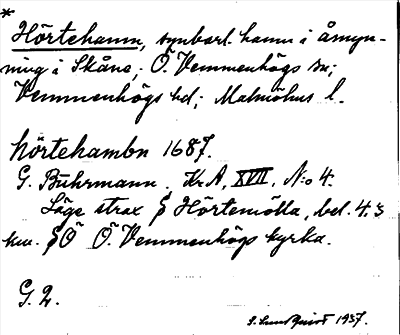 *
Hörtehamn, synbarl. hamn i åmyn-
ning i Skåne; Ö. Vemmenhögs sn;
Vemmenhögs hd; Malmöhus l.
hörtehambn 1687.
G. Buhrmann. KrA, XVII, N:o 4.
Läge strax § Hörtemölla, bel. 4.3
km. §Ö Ö. Vemmenhögs kyrka.
G. 2.
S. 1937.